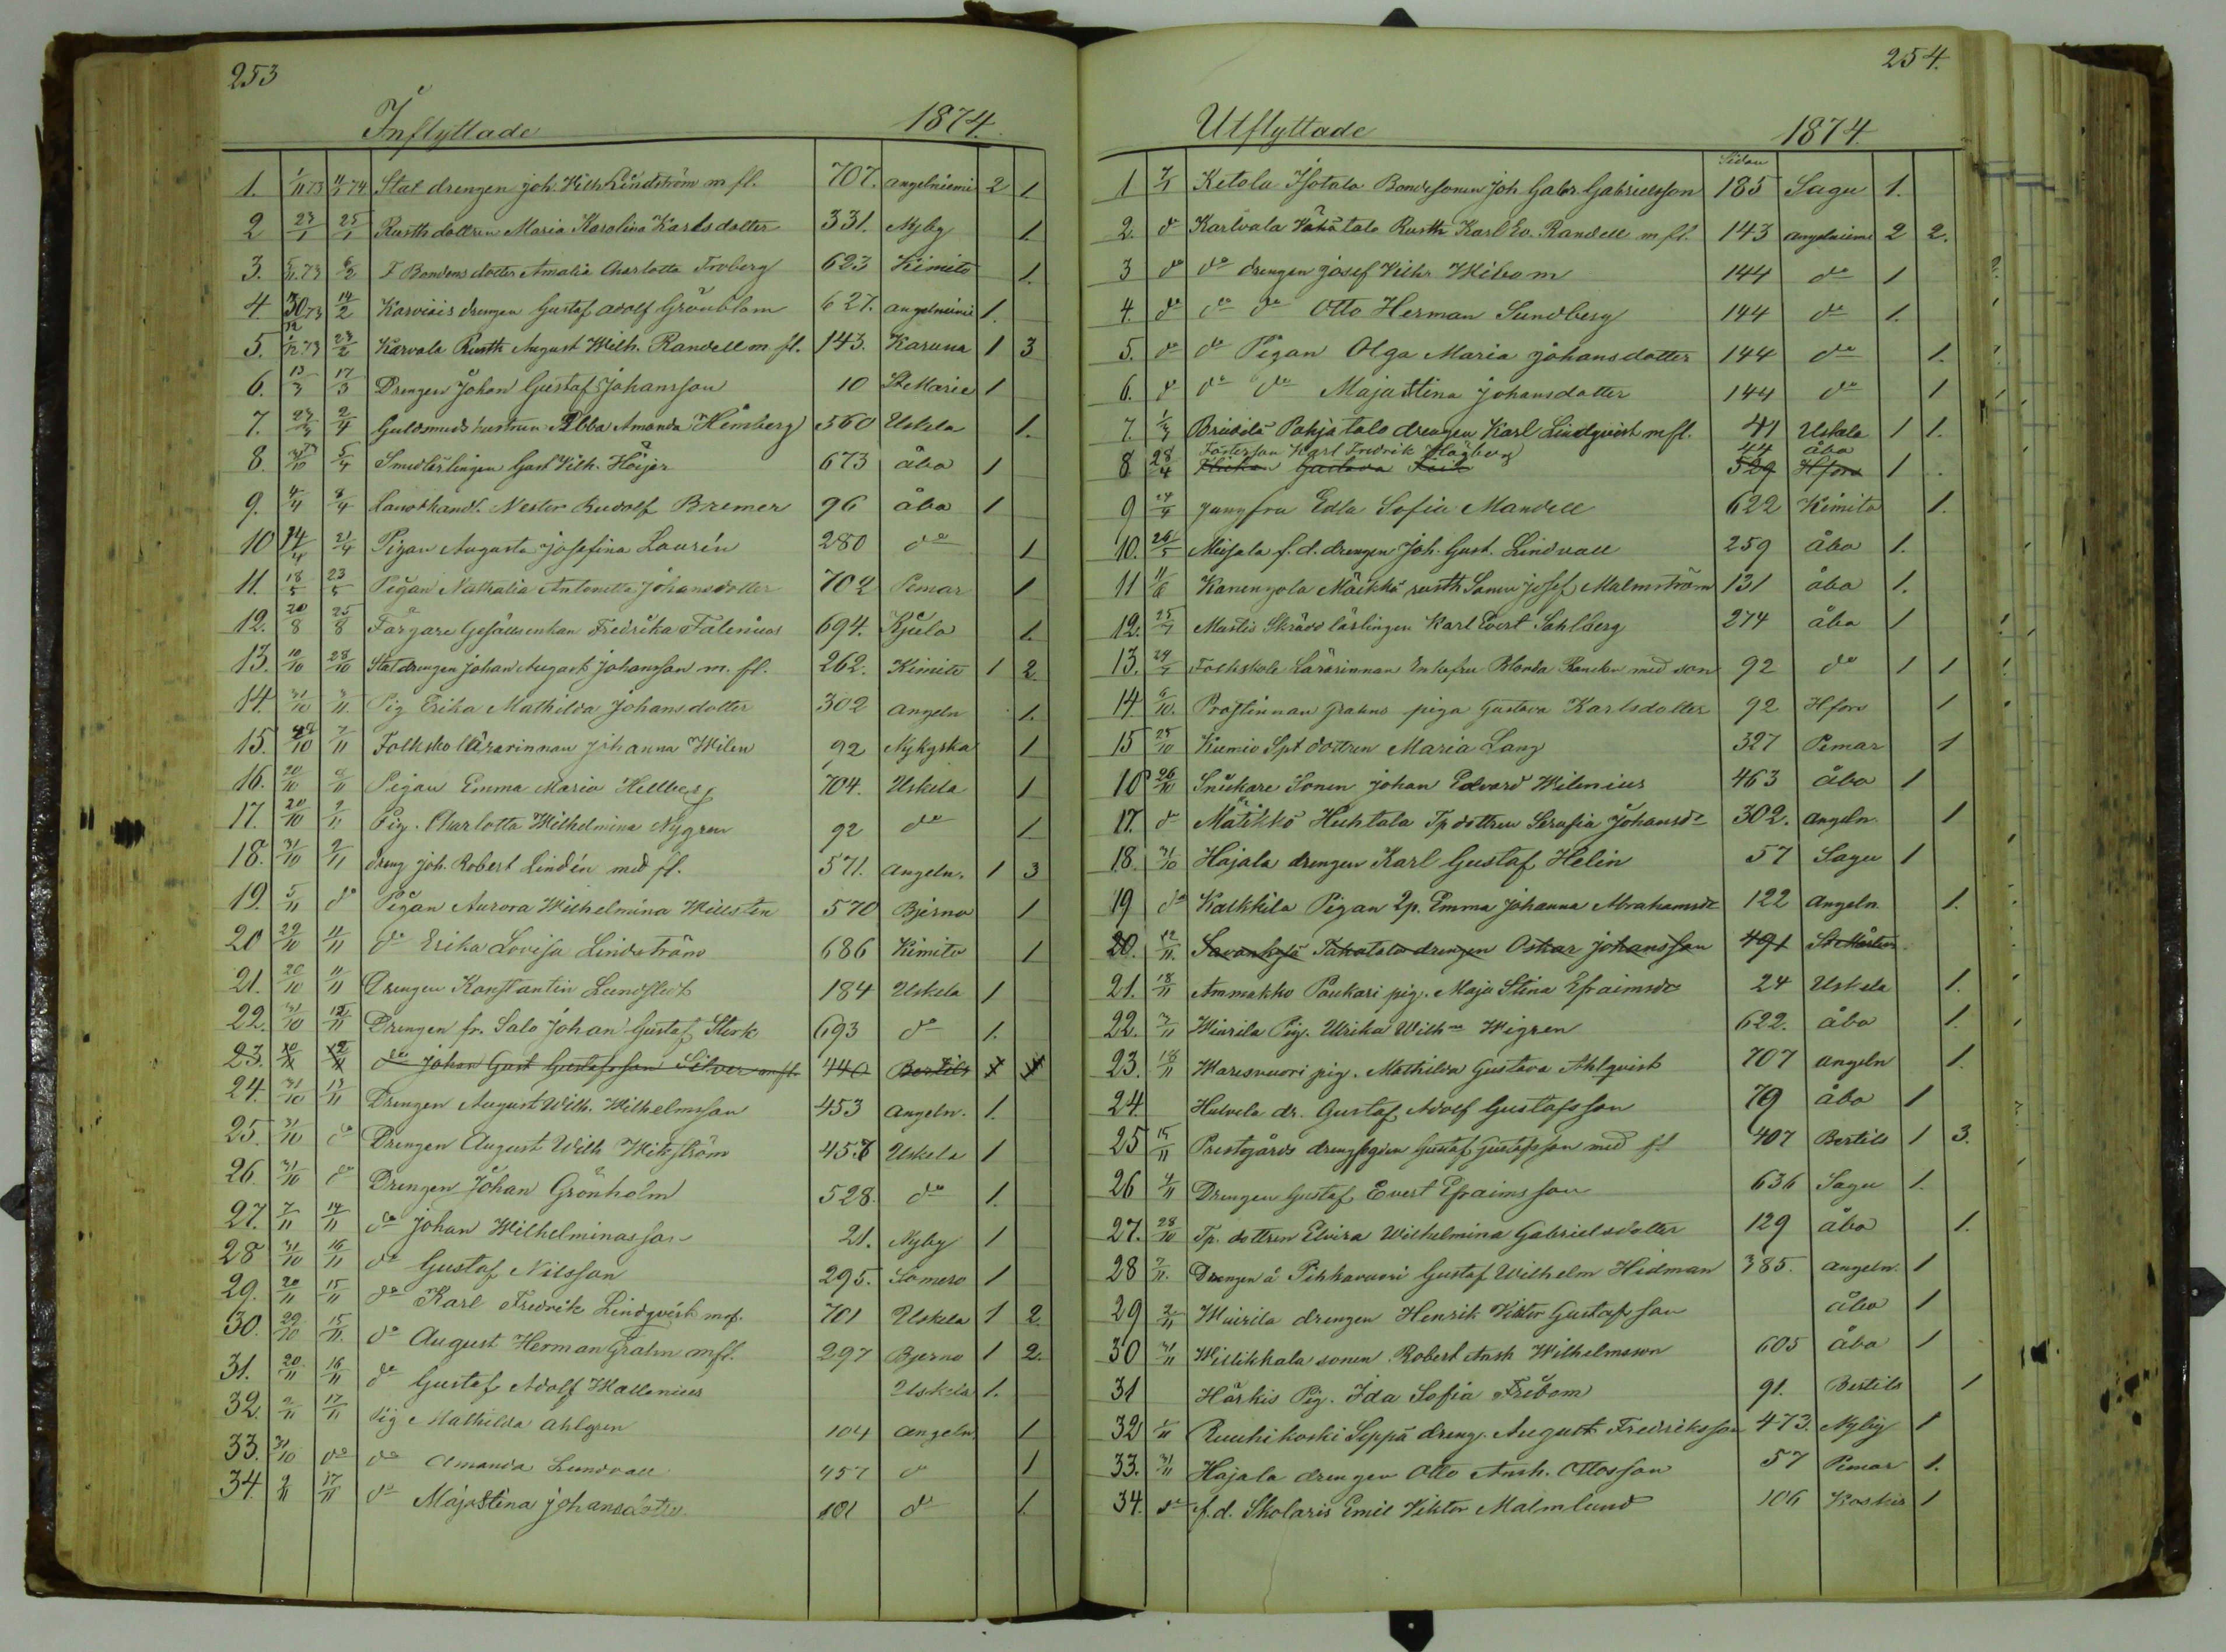 253
Inflyttade 1874.
1. 1/11 73 11/1 74 Stat drengen joh. Wilh Lindström m fl. 707. angelniemi 2 1.
2 23/1 25/1 Rusth dottren Maria Karolina Karlsdotter 331. Nyby 1.
3. 6/2 F Bondens dotter Amalia Charlotta Froberg 623 Kimito 1.
4 14/2 Karviais drengen Gustaf adolf Grönblom 627. angelniemi 1.
5. 23/2 Karvala Rusth August Wilh. Randell m fl. 143. Karuna 1 3
6. 13/3 17/3 Drengen Johan Gustaf Johansson 10 St Marie 1
7. 2/4 Guldsmeds hustrun Ebba Amanda Hemberg 560 Uskela 1.
8. 5/4 Smedlärlingen Gust Wilh. Höijer 673 åbo 1
9. 4/4 8/4 landthandl. Nestor Rudolf Bremer 96 åbo 1
10 14/4 21/4 Pigan Augusta Josefina Laurén 280 do 1
11. 18/5 23/5 Pigan Nathalia Antonetta Johansdotter 702 Pemar 1
12. 20/8 25/8 Färgare Gesällsenkan Fredrika Falenius 694. Kjula 1.
13. 10/10 28/10 Statdrengen Johan August Johansson m. fl. 262. Kimito 1 2.
14. 31/10 3/11 Pig Erika Mathilda Johansdotter 302 angeln 1.
15. 7/11 Folkskollärarinnan Johanna Wilen 92 Nykyrka 1
16. 20/10 Pigan Emma Maria Hellberg 704. Uskela 1
17. 20/10 9/11 Pig. Charlotta Wilhelmina Nygren 92 do 1
18. 31/10 9/11 dreng joh. Robert Lindén med fl. 571. angeln. 1 3
19. 5/11 do Pigan Aurora Wilhelmina Willsten 570 Bjerno 1
20 29/10 11/11 do Erika Lovisa Lindström 686 Kimito 1
21. 20/10 11/11 Drengen Konstantin Lundstedt 184 Uskela 1
22. 31/10 12/11 Drengen fr. Salo Johan Gustaf Stork 693 do 1.
23. 12/11 do Johan Gust Gustafsson Silver m fl. 440 Bertils
24. 31/10 13/11 Drengen August Wilh. Wilhelmsson 453 angeln. 1.
25. 31/10 do Drengen August Wilh Wikström 457 Uskela 1
26. 31/10 do Drengen Johan Grönholm 528. do 1.
27. 7/11 14/11 do Johan Wilhelminasson 21. Nyby 1
28 31/10 16/11 do Gustaf Nilsson 295. Somero 1
29. 20/11 15/11 do Karl Fredrik Lindqvist mf. 701 Uskela 1 2.
30. 29/10 15/11. do August Herman Grahn m fl. 297 Bjerno 1 2.
31. 20/11 16/11 do Gustaf Adolf Wallenius Uskela 1.
32. 9/11 17/11 Pig Mathilda Ahlgren 104 angeln 1
33. 31/10 do do Amanda Lundvall 457 do 1
34. 2/11 17/11 do Maja Stina Johansdotter 101 do 1.
254.
Utflyttade 1874.
Sidan
1 7/1 Ketola Isotalo Bondesonen Joh Gabr. Gabrielsson 185 Sagu 1.
2. do Karlvala Vähätalo Rusth Karl Ev. Randell m fl. 143 angelniemi 2 2.
3 do do drengen Josef Vilhr Wibom 144 do 1
4. do do do Otto Herman Sundberg 144 do 1.
5. do do Pigan Olga Maria Johansdotter 144 do 1.
6. do do do Maja Stina Johansdotter 144 do 1
7. 1/3 Briidilä Pohjatalo drengen Karl Lindqvist m fl. 41 Uskela 1 1.
Karl Fredrik Hagberg 44 åbo
8 28/4 Flickan Gustava 529 Hfors 1
9 24/4 jungfru Edla Sofia Mandell 622 Kimito 1.
10. 26/5 Miisala f. d. drengen Joh. Gust. Lindvall 259 åbo 1.
11 11/6 Kanungola Mäikkö rusth Sonen Josef Malmström 131 åbo 1.
12. 25/7 Mustis Skräddlärlingen Karl Evert Sahlberg 274 åbo 1
13. 24/7 Folkskole Lärarinnan Enkefru Blonda med son 92 do 1 1
14. 6/10. Prostinnan Grahns piga Gustava Karlsdotter 92 Hfors 1
15 25/10 Kumio Spt dottren Maria Lang 327 Pemar 1
16 26/10 Snickare Sonen Johan Edvard Wilenius 463 åbo 1
17. do Mäikkö Huhtala Tp dottren Serafia Johansdr 302. angeln. 1
18. 31/10 Hajala drengen Karl Gustaf Helin 57 Sagu 1
19 do Kalkkila Pigan 2p. Emma Johanna Abrahamsdr 122 angeln. 1.
20. 12/11. Takatalo drengen Oskar Johansson 491 St Mårtens
21. 18/11 Ammakko Paukari pig. Maja Stina Efraimsdr 24 Uskela 1.
22. 3/11 Wiurila Pig. Ulrika Wilhna Wigren 622. åbo 1.
23. 18/11 Maresvuori pig. Mathilda Gustava Ahlqvist 707 angeln 1.
24. Hulvela dr. Gustaf Adolf Gustafsson 79 åbo 1
25 15/11 Prestgårds drengen Gustaf Gustafsson med fl 407 Bertils 1 3.
26 4/11 Drengen Gustaf Evert Efraimsson 636 Sagu 1.
27. 28/10 Tp. dottren Elvira Wilhelmina Gabrielsdotter 129 åbo 1.
28 7/11. Drengen å Pihkavuori Gustaf Wilhelm Hidman 385. angeln. 1
29 2/11 Wiurila drengen Henrik Viktor Gustafsson åbo 1
30 31/11 Willikkala sonen Robert Ansh Wilhelmsson 605 åbo 1
31 Härkis Pig. Ida Sofia Fribom 91. Bertils 1
32 Ruuhikoski Seppä dreng. August Fredriksson 473. Nyby 1
33. 31/11 Hajala drengen Otto Ansh. Ottosson 57 Pemar 1.
34. do f. d. Skolaris Emil Viktor Malmlund 106 Koskis 1